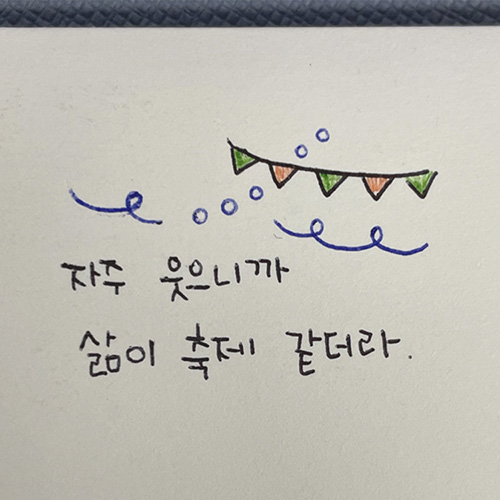 자주 웃으니까
삶이 축제 같더라.